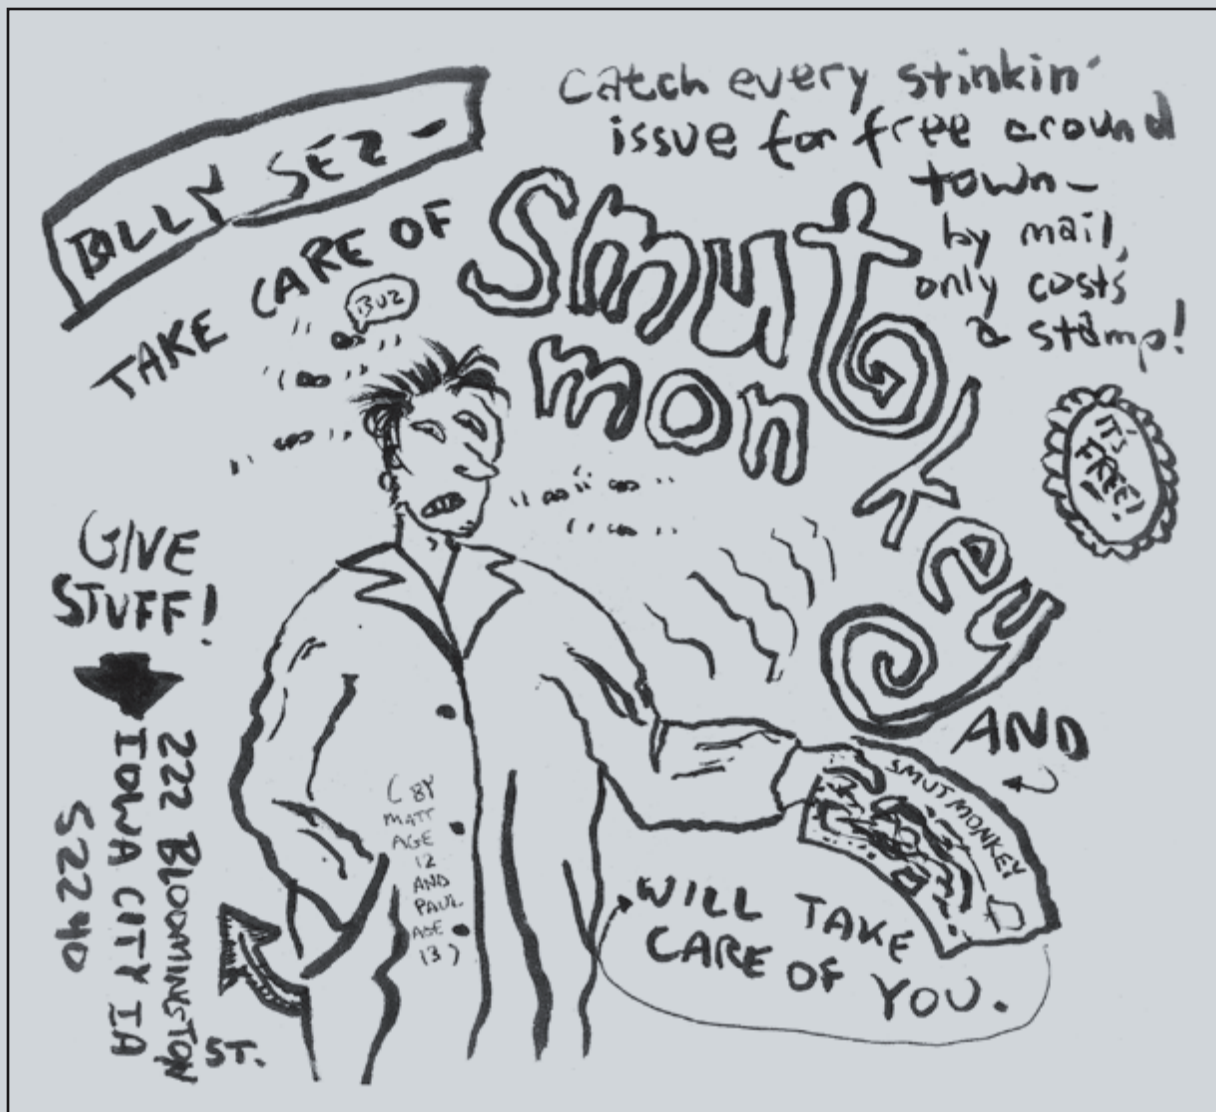 BILLY SEZ -
TAKE CARE OF
Smut
mon
key
Catch every stinkin'
issue for free around
town-
by mail,
only costs
a stamp!
BUZ
IT'S
FREE!
GIVE
STUFF!
222 BLOOMINGTON
ST.
IOWA CITY IA
52240
(BY
MATT
AGE
12
AND
PAUL
AGE
13)
AND
SMUT MONKEY
WILL TAKE
CARE OF
YOU.